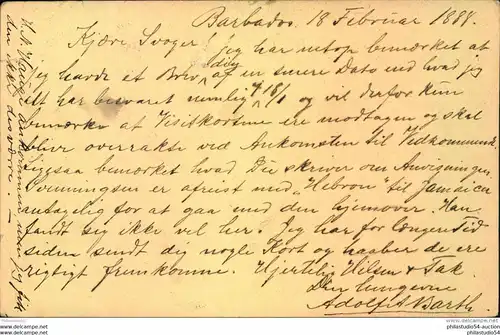 Barbados 18 Februar 1888.
Kjære Svoger! Jeg har netop bemærket at
jeg havde et Brev fra dig af en senere Dato end hvad jeg
alt har besvaret nemlig 4/1 og vil derfor kun
bemærke at Visitkortene ere modtagen og skal
blive overrakte ved Ankomsten til Vedkommende.
Ligesaa bemærket hvad Du skriver om Anvisningen.
Svenningsen er afreist med "Hebron" til Jamaica
antagelig for at gaa med den hjemover. Han
fandt sig ikke vel her. Jeg har for længere Tid
siden sendt dig nogle Kort og haaber de ere
rigtigt fremkomne. Hjertelig Hilsen & Tak.
Din hengivne
Adolf A Barth.
den ikke desværre. —
www.philastudio-auctions.com
philastudio-auctions